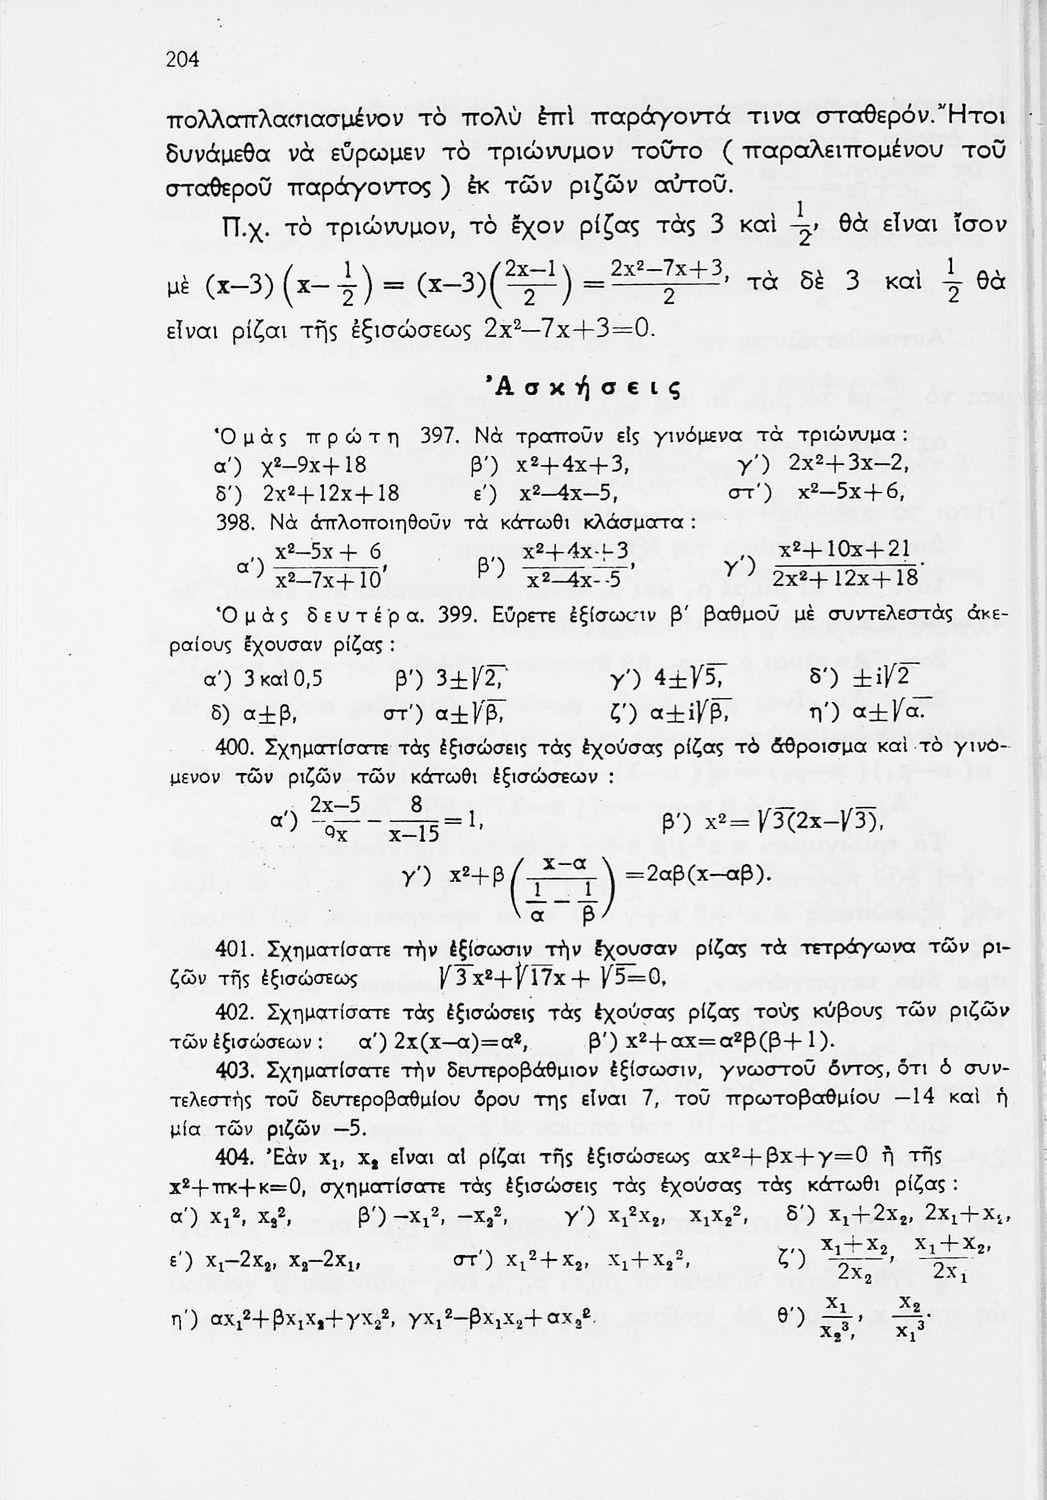 204
πολλαπλασιασμένον τὸ πολὺ ἐπὶ παράγοντά τινα σταθερόν. Ἤτοι
δυνάμεθα νὰ εὕρωμεν τὸ τριώνυμον τοῦτο ( παραλειπομένου τοῦ
σταθεροῦ παράγοντος ) ἐκ τῶν ριζῶν αὐτοῦ.
Π.χ. τὸ τριώνυμον, τὸ ἔχον ρίζας τὰς 3 καὶ 1/2, θὰ εἶναι ἴσον
μὲ (x—3) (x— 1/2) = (x—3)((2x—1)/2) = (2x²—7x+3)/2, τὰ δὲ 3 καὶ 1/2 θὰ
εἶναι ρίζαι τῆς ἐξισώσεως 2x²—7x+3=0.
Ἀσκήσεις
Ὁμὰς πρώτη 397. Νὰ τραποῦν εἰς γινόμενα τὰ τριώνυμα :
α′) χ²—9x+18 β′) x²+4x+3, γ′) 2x²+3x—2,
δ′) 2x²+12x+18 ε′) x²—4x—5, στ′) x²—5x+6,
398. Νὰ ἁπλοποιηθοῦν τὰ κάτωθι κλάσματα :
α′) (x²—5x+6)/(x²—7x+10), β′) (x²+4x+3)/(x²—4x-5), γ′) (x²+10x+21)/(2x²+12x+18).
Ὁμὰς δευτέρα. 399. Εὕρετε ἐξίσωσιν β′ βαθμοῦ μὲ συντελεστὰς ἀκε-
ραίους ἔχουσαν ρίζας :
α′) 3 καὶ 0,5 β′) 3±√2, γ′) 4±√5, δ′) ±i√2
δ) α±β, στ′) α±√β, ζ′) α±i√β, η′) α±√α.
400. Σχηματίσατε τὰς ἐξισώσεις τὰς ἐχούσας ρίζας τὸ ἄθροισμα καὶ τὸ γινό-
μενον τῶν ριζῶν τῶν κάτωθι ἐξισώσεων :
α′) (2x—5)/9x — 8/(x—15) = 1, β′) x²= √3(2x—√3),
γ′) x²+β((x—α)/(1/α — 1/β)) =2αβ(x—αβ).
401. Σχηματίσατε τὴν ἐξίσωσιν τὴν ἔχουσαν ρίζας τὰ τετράγωνα τῶν ρι-
ζῶν τῆς ἐξισώσεως √3x²+√17x+ √5=0,
402. Σχηματίσατε τὰς ἐξισώσεις τὰς ἐχούσας ρίζας τοὺς κύβους τῶν ριζῶν
τῶν ἐξισώσεων : α′) 2x(x—α)=α², β′) x²+αx=α²β(β+1).
403. Σχηματίσατε τὴν δευτεροβάθμιον ἐξίσωσιν, γνωστοῦ ὄντος, ὅτι ὁ συν-
τελεστὴς τοῦ δευτεροβαθμίου ὅρου της εἶναι 7, τοῦ πρωτοβαθμίου —14 καὶ ἡ
μία τῶν ριζῶν —5.
404. Ἐὰν x₁, x₂ εἶναι αἱ ρίζαι τῆς ἐξισώσεως αx²+βx+γ=0 ἢ τῆς
x²+πκ+κ=0, σχηματίσατε τὰς ἐξισώσεις τὰς ἐχούσας τὰς κάτωθι ρίζας :
α′) x₁², x₂², β′) —x₁², —x₂², γ′) x₁²x₂, x₁x₂², δ′) x₁+2x₂, 2x₁+x₂,
ε′) x₁—2x₂, x₂—2x₁, στ′) x₁²+x₂, x₁+x₂², ζ′) (x₁+x₂)/2x₂, (x₁+x₂)/2x₁,
η′) αx₁²+βx₁x₂+γx₂², γx₁²—βx₁x₂+αx₂², θ′) x₁/x₂³, x₂/x₁³.